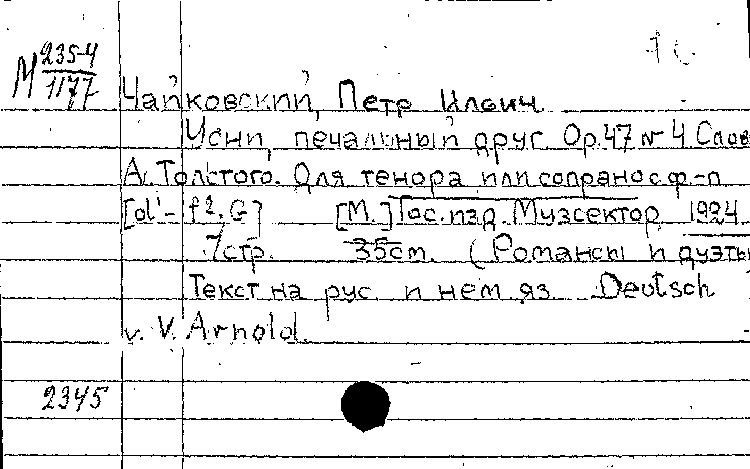 М 235-4
1177
Чайковский, Петр Ильич
Усни, печальный друг. Op.47 № 4 Слов
А. Толстого. Для тенора или сопрано с ф-п
[d'- f2. G] [М.] Гос. изд. Музсектор, 1924
7стр. 35см. (Романсы и дуэты
Текст на рус. и нем. яз. Deutsch
v. V. Arnold.
2345